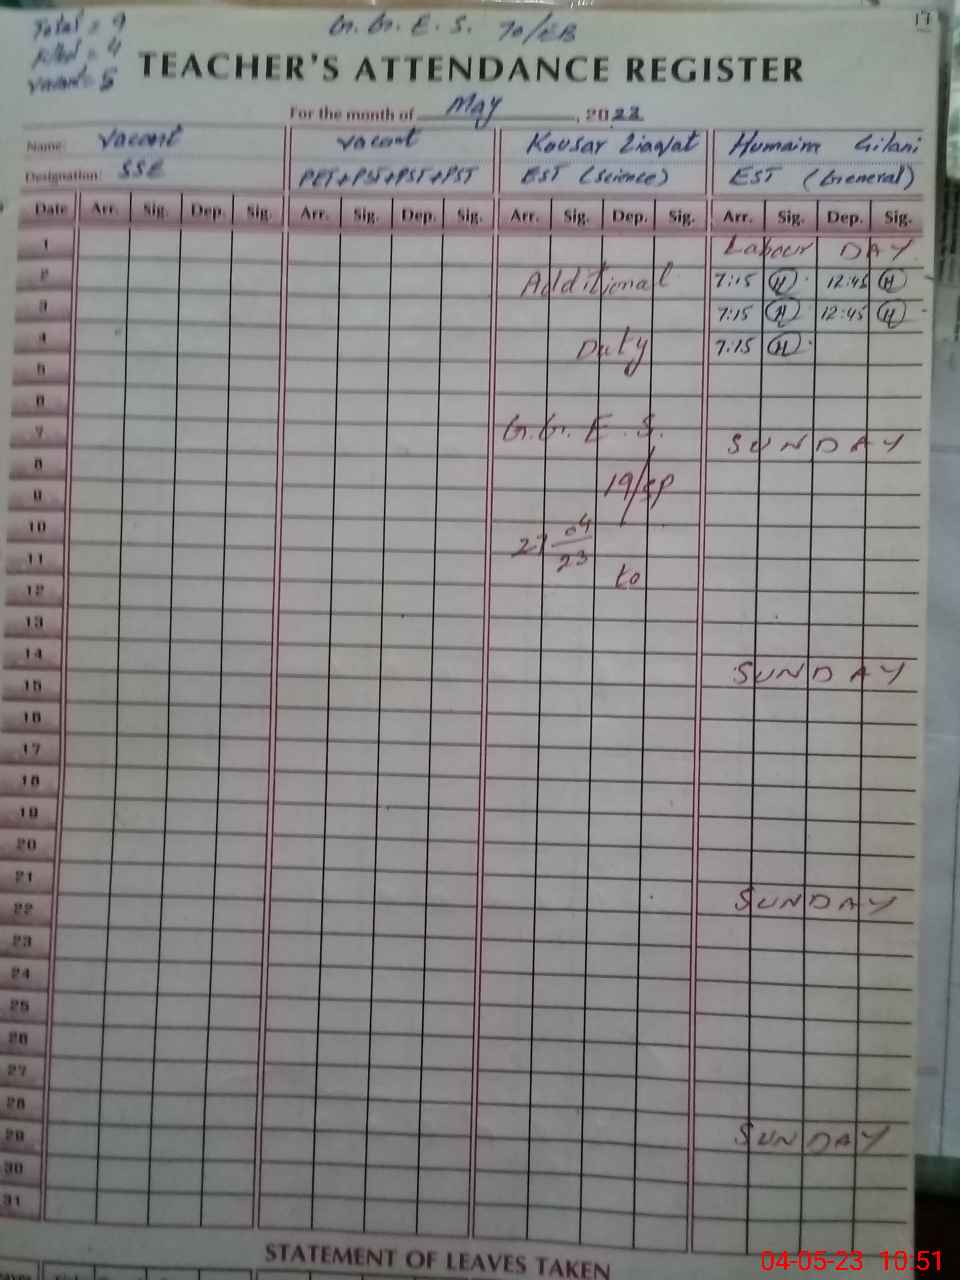 17
Total = 9
G. G. E. S. 70/EB
Filled = 4
Vacant = 5
TEACHER'S ATTENDANCE REGISTER
For the month of May, 2023
Name: Vacant vacant Kousar Liaqat Humaira Gilani
Designation: SSE PET+PST+PST+PST EST (Science) EST (General)
Date Arr. Sig. Dep. Sig. Arr. Sig. Dep. Sig. Arr. Sig. Dep. Sig. Arr. Sig. Dep. Sig.
1 Labour DAY
2 Additional 7:15 H 12:45 H
3 7:15 H 12:45 H
4 Duty 7:15 H
5
6
7 G. G. E. S. SUNDAY
8
9 19/SP
10
11 27 04/23
12 to
13
14 SUNDAY
15
16
17
18
19
20
21
22 SUNDAY
23
24
25
26
27
28
29 SUNDAY
30
31
STATEMENT OF LEAVES TAKEN
04-05-23 10:51